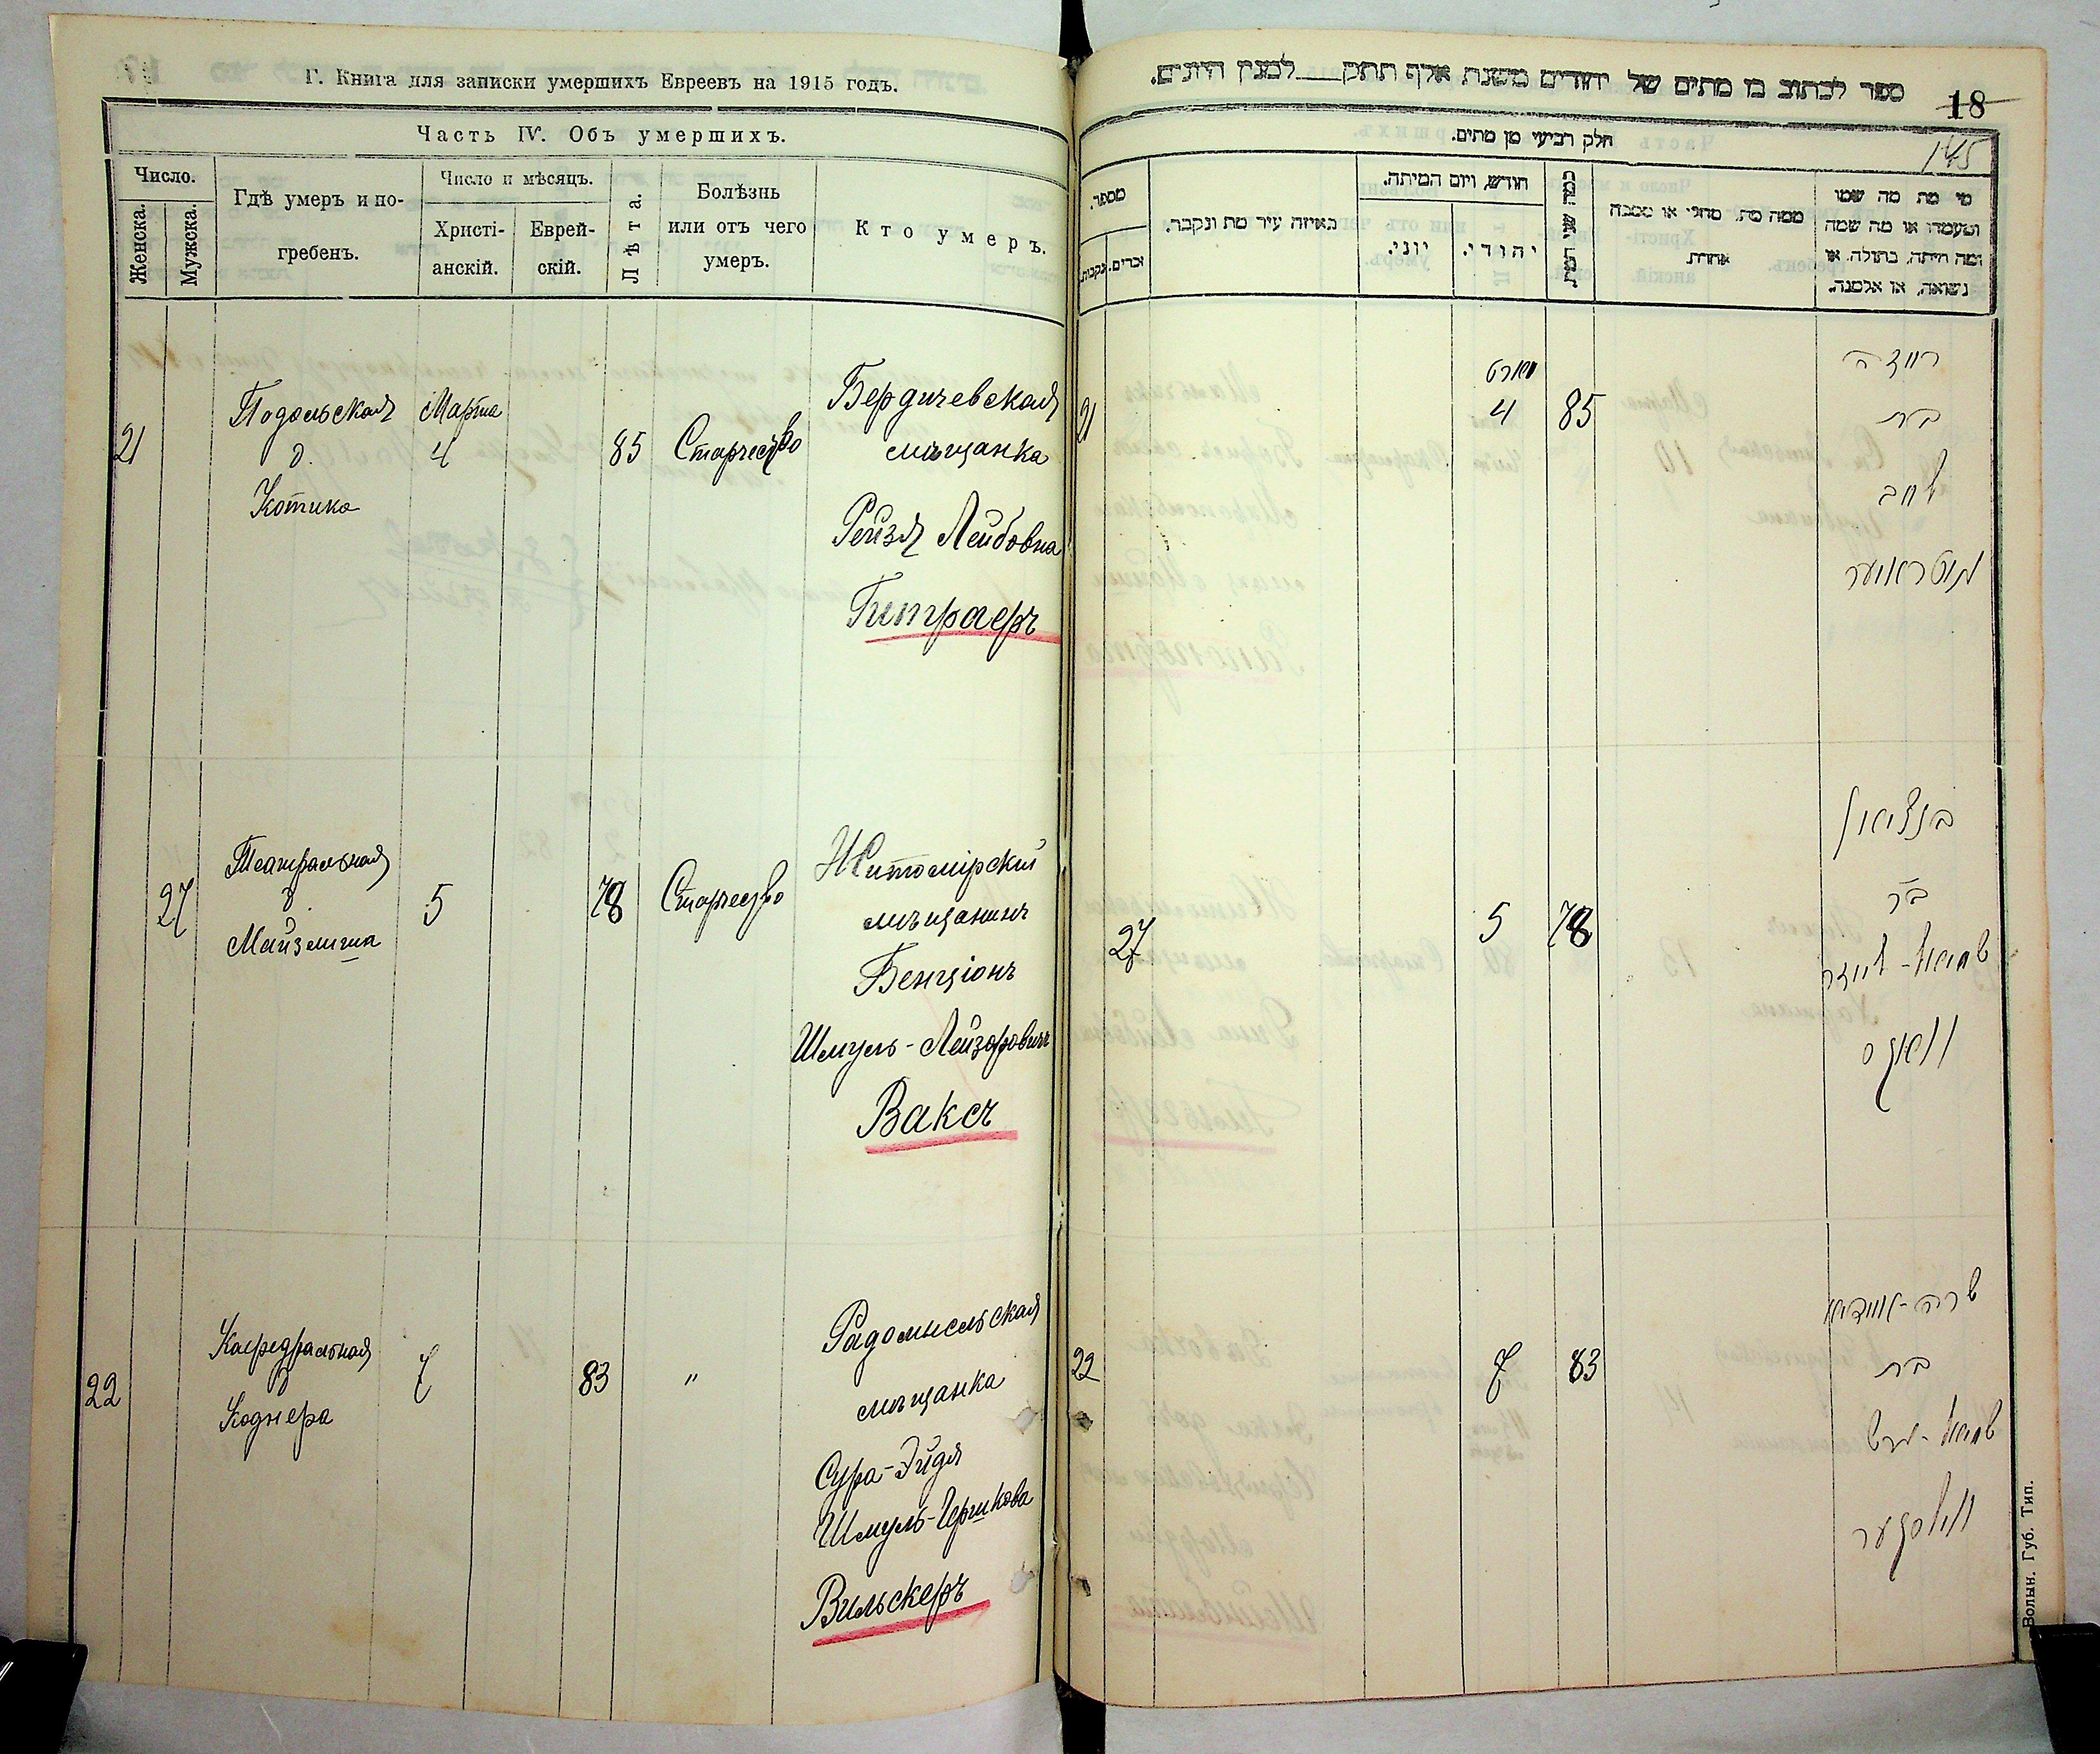 Г. Книга для записки умершихъ Евреевъ на 1915 годъ.
Часть IV. Объ умершихъ.
Число.
Женска.
Мужска.
Гдѣ умеръ и по-
гребенъ.
Число и мѣсяцъ.
Христі-
анскій.
Еврей-
скій.
Лѣта.
Болѣзнь
или отъ чего
умеръ.
Кто умеръ.
21
Подольская
д.
Котика
Марта
4
85
Старчество
Бердичевская
мѣщанка
Рейзя Лейбовна
Гитраеръ
27
Театральная
д
Майзлиша
5
78
Старчество
Житомірскій
мѣщанинъ
Бенціонъ
Шмуль-Лейзоровичъ
Ваксъ
22
Кафедральная
д
Коднера
7
83
"
Радомысльская
мѣщанка
Сура-Эйдя
Шмуль-Гершкова
Вильскеръ
ספר לכתוב בו מתים של יהודים משנת אלף תתק למנין היונים.
18
145
חלק רביעי מן מתים.
מספר.
זכרים.
נקבות.
באיזה עיר מת ונקבר.
חודש, ויום המיתה.
יוני.
יהודי.
כמה שני המת
ממה מת, מחלי או מסבה
אחרת.
מי מת מה שמו
ומעמדו או מה שמה
ומה היתה, בתולה. או
נשואה, או אלמנה.
21
מארט
4
85
רייזה
בת
ליב
27
5
78
בנציאן
בר
שמואל-לייזר
וואקס
22
7
83
שרה-איידיא
בת
שמואל-הרש
ווילסקער
Волын. Губ. Тип.